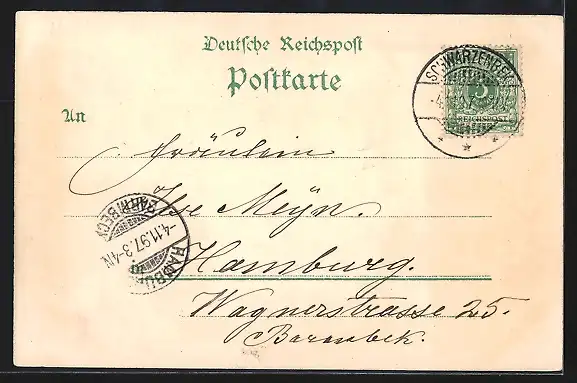 Deutsche Reichspost
Postkarte
SCHWARZENBEK
5
REICHSPOST
An
Fräulein
Ilse Meyn.
in Hamburg.
Wagnerstrasse 25.
Barmbek.
HAMBURG
-4.11.97.3-4N.
BARMBECK